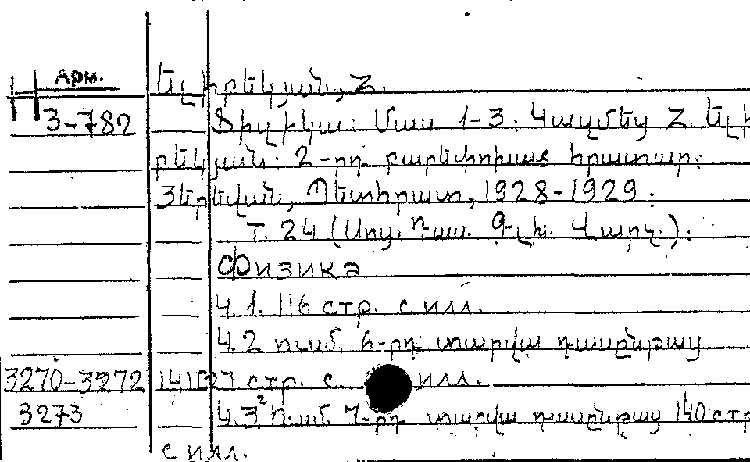 Арм. Ելիբեկյան, Հ.
Ц 3-782 Ֆիզիկա: Մաս 1-3: Կազմեց Հ. Ելի
բեկյան: 2-րդ բարեփոխված հրատար:
Յերեվան, Պետհրատ, 1928-1929:
Т. 24 (Սոց. Դաս. Գլխ. Վարչ.):
Физика
Ч. 1. 116 стр. с илл.
Ч. 2 ուսմ. 6-րդ տարվա դասընթաց
3270-3272 стр. с илл.
3273 Ч. 3 ուսմ. 7-րդ տարվա դասընթաց 140 стр
с илл.